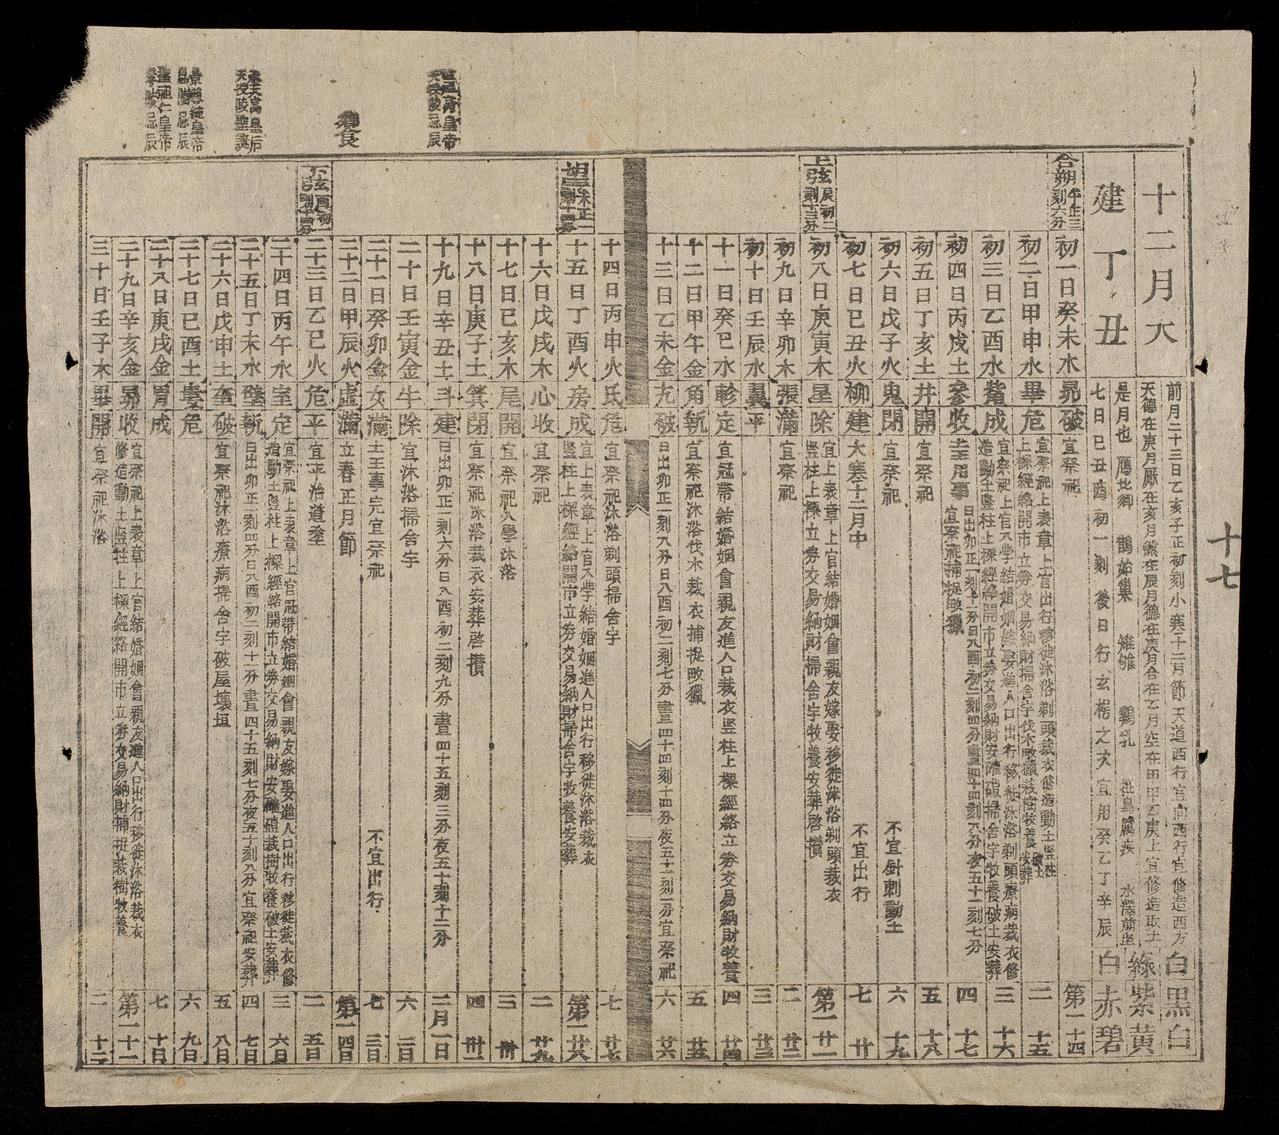 十七
十二月大
建丁丑
前月二十三日乙亥子正初刻小寒十二月節天道西行宜向西行宜修造西方
天德在庚月厭在亥月煞在辰月德在庚月合在乙月空在甲甲乙庚上宜修造取土
是月也 鴈北鄉 鵲始巢 雉雊 鷄乳 征鳥厲疾 水澤腹堅
七日己丑酉初一刻 後日行玄枵之次宜用癸乙丁辛辰
白黑白
綠紫黃
白赤碧
合朔午正三刻六分
初一日癸未木昴破 宜祭祀 第一 十四
初二日甲申水畢危 宜祭祀上表章上官出行移徙沐浴剃頭裁衣修造動土竪柱上樑經絡開市立券交易納財掃舍宇伐木畋獵栽種牧養破土安葬 二 十五
初三日乙酉水觜成 宜祭祀上官入學結婚姻嫁娶進人口出行移徙沐浴剃頭療病裁衣修造動土竪柱上樑經絡開市立券交易納財安碓磑掃舍宇牧養破土安葬 三 十六
初四日丙戌土參收 土王用事 日出卯正一刻十一分日入酉初二刻四分晝四十四刻八分夜五十一刻七分宜祭祀捕捉畋獵 四 十七
初五日丁亥土井開 宜祭祀 五 十八
初六日戊子火鬼閉 宜祭祀 不宜針刺動土 六 十九
初七日己丑火柳建 大寒十二月中 不宜出行 七 廿
上弦辰初二刻十三分
初八日庚寅木星除 宜上表章上官結婚姻會親友嫁娶移徙沐浴剃頭裁衣竪柱上樑立券交易納財掃舍宇牧養安葬啓攢 第一 廿一
初九日辛卯木張滿 宜祭祀 二 廿二
初十日壬辰水翼平 三 廿三
十一日癸巳水軫定 宜冠帶結婚姻會親友進人口裁衣竪柱上樑經絡立券交易納財牧養 四 廿四
十二日甲午金角執 宜祭祀沐浴伐木裁衣捕捉畋獵 五 廿五
十三日乙未金亢破 日出卯正一刻八分日入酉初二刻七分晝四十四刻十四分夜五十一刻一分宜祭祀 六 廿六
十四日丙申火氐危 宜祭祀沐浴剃頭掃舍宇 七 廿七
十五日丁酉火房成 宜上表章上官入學結婚姻進人口出行移徙沐浴裁衣竪柱上樑經絡開市立券交易納財掃舍宇牧養安葬 第一 廿八
十六日戊戌木心收 宜祭祀 二 廿九
十七日己亥木尾開 宜祭祀入學沐浴 三 卅
十八日庚子土箕閉 宜祭祀沐浴裁衣安葬啓攢 四 卅一
十九日辛丑土斗建 日出卯正一刻六分日入酉初二刻九分晝四十五刻三分夜五十刻十二分 二月一日
二十日壬寅金牛除 宜沐浴掃舍宇 六 二日
二十一日癸卯金女滿 土王事完宜祭祀 不宜出行 七 三日
二十二日甲辰火虛滿 立春正月節 第一 四日
二十三日乙巳火危平 宜平治道塗 二 五日
二十四日丙午水室定 宜祭祀上表章上官冠帶結婚姻會親友嫁娶進人口出行移徙裁衣修造動土竪柱上樑經絡開市立券交易納財安碓磑栽樹牧養破土安葬 三 六日
二十五日丁未水壁執 日出卯正一刻四分日入酉初二刻十一分晝四十五刻七分夜五十刻八分宜祭祀安葬 四 七日
二十六日戊申土奎破 宜祭祀沐浴療病掃舍宇破屋壞垣 五 八日
二十七日己酉土婁危 六 九日
二十八日庚戌金胃成 七 十日
二十九日辛亥金昴收 宜祭祀上表章上官結婚姻會親友進人口出行移徙沐浴裁衣修造動土竪柱上樑經絡開市立券交易納財捕捉栽樹牧養 第一 十一
三十日壬子木畢開 宜祭祀沐浴 二 十二